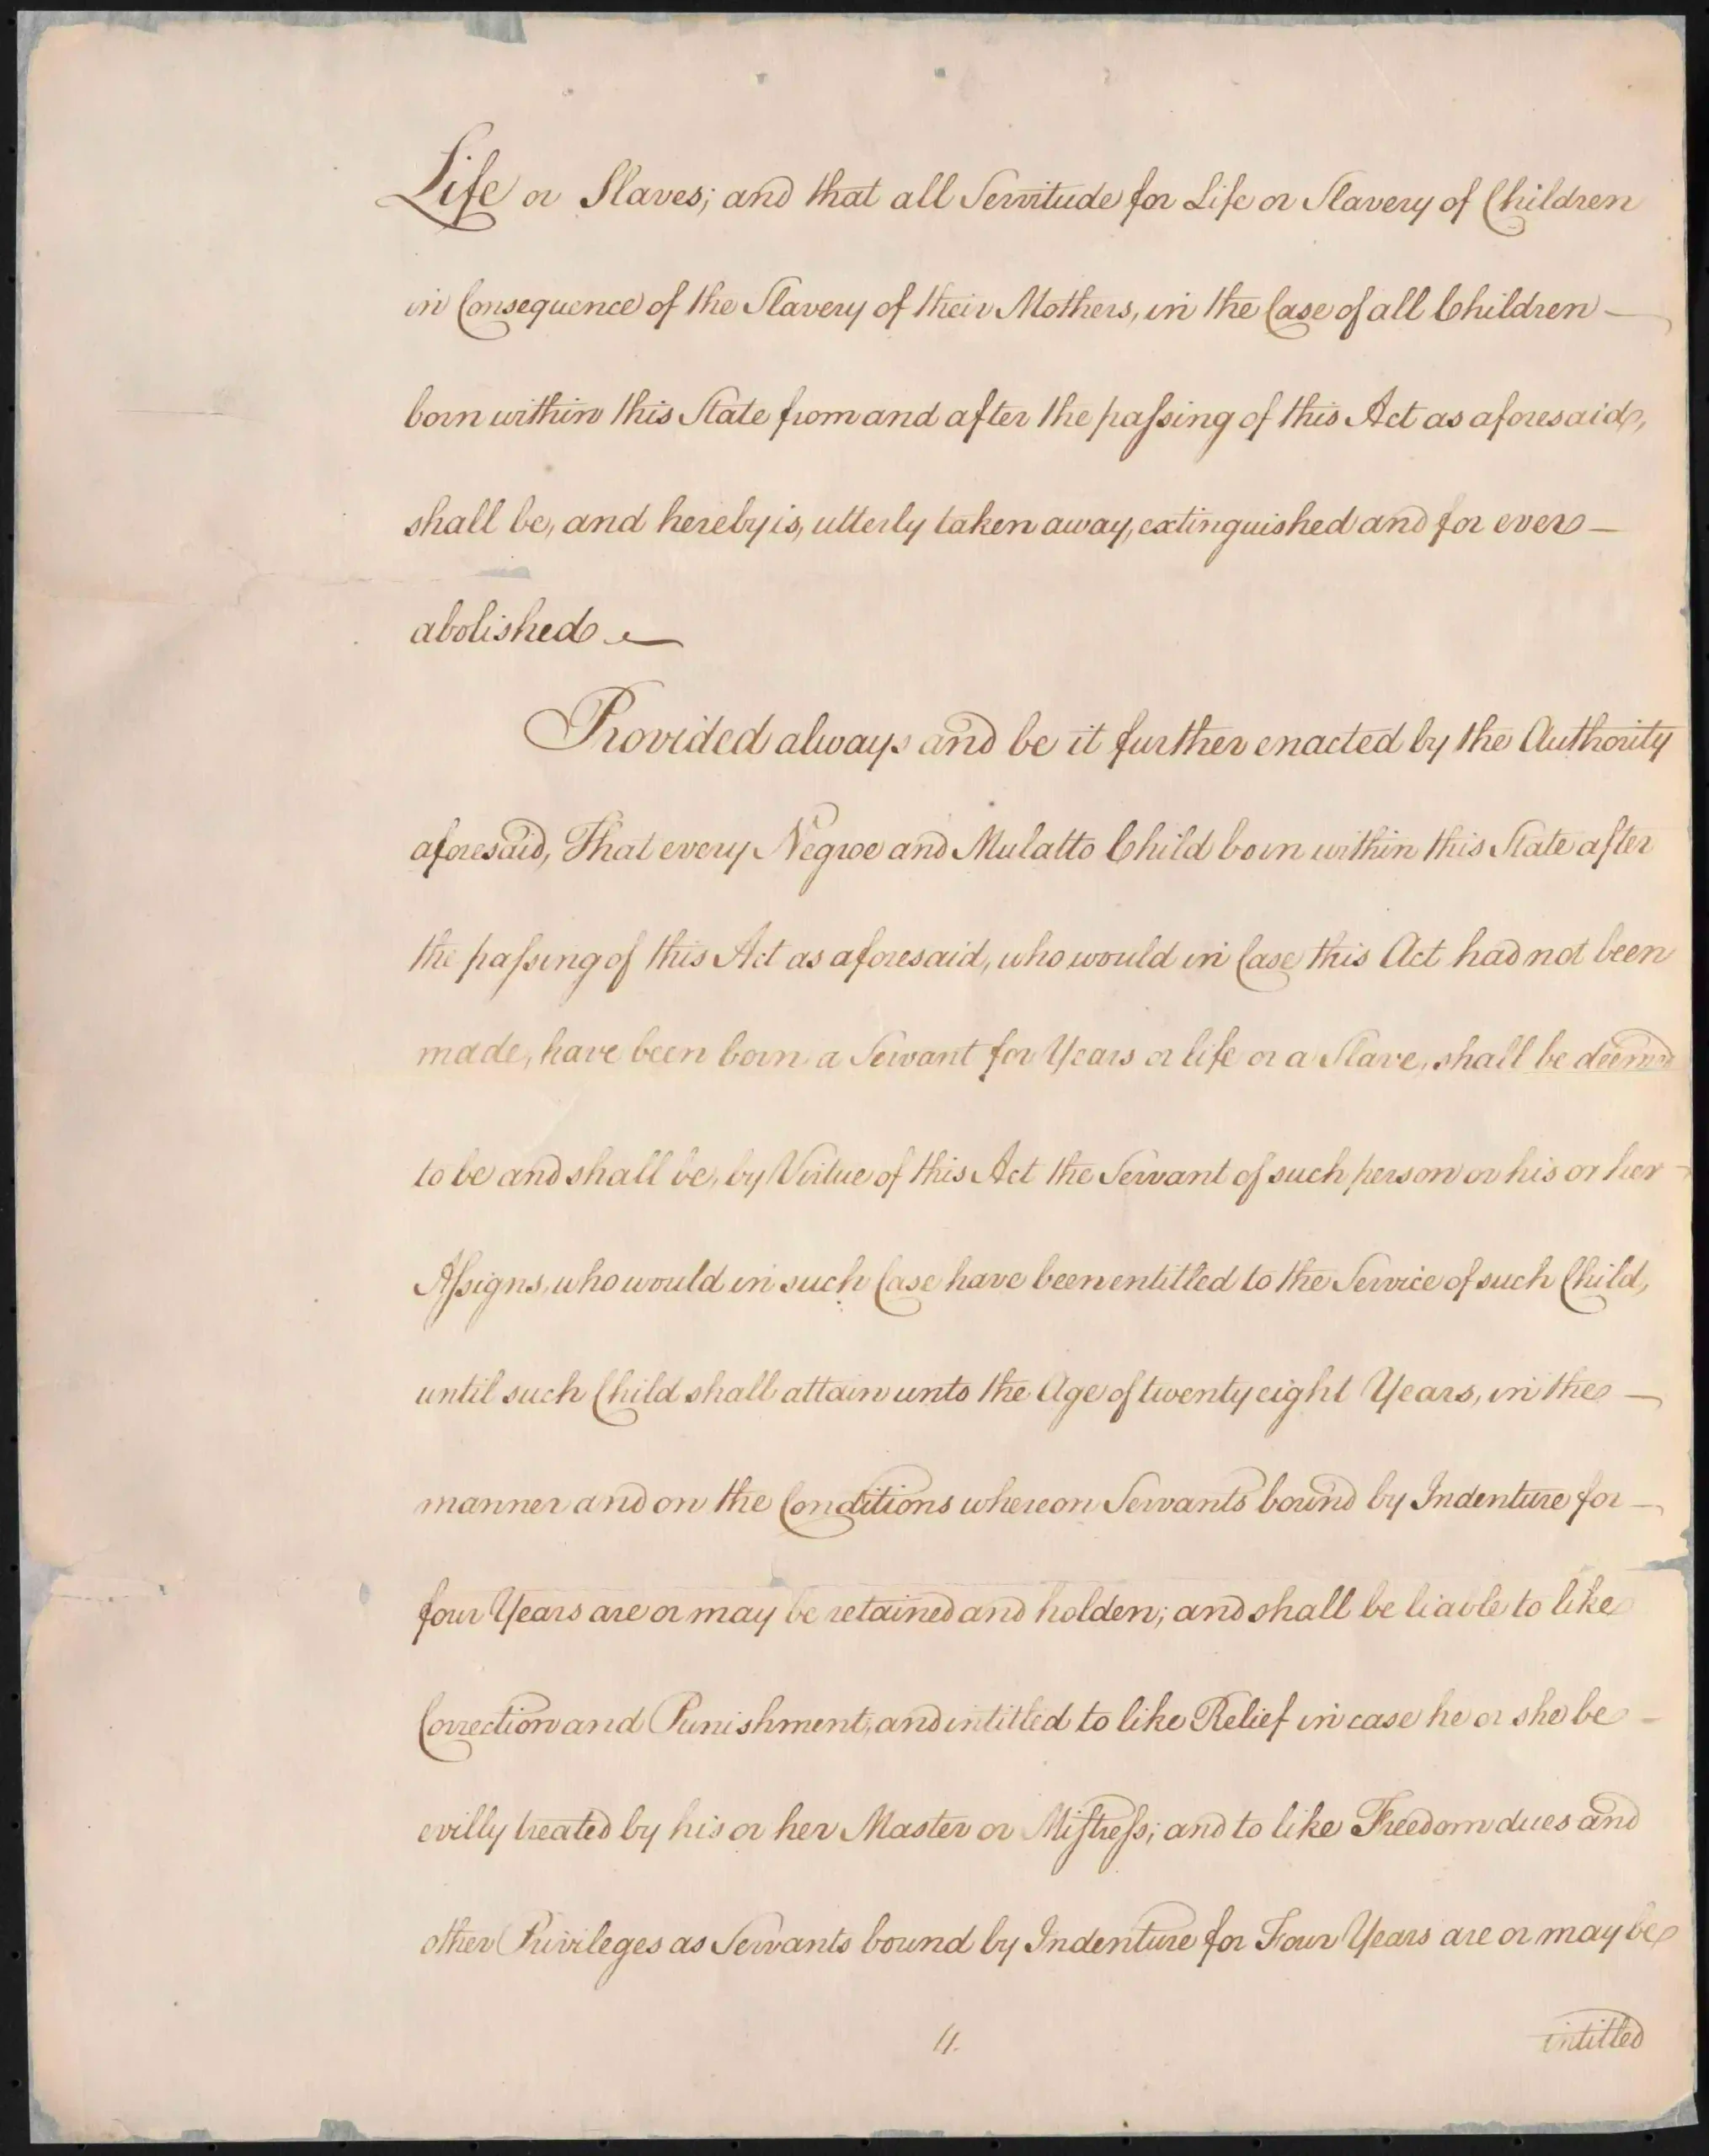 Life or Slaves; and that all Servitude for Life or Slavery of Children
in Consequence of the Slavery of their Mothers, in the Case of all Children —
born within this State from and after the paſsing of this Act as aforesaid,
shall be, and hereby is, utterly taken away, extinguished and for ever —
abolished —
Provided always and be it further enacted by the Authority
aforesaid, That every Negroe and Mulatto Child born within this State after
the paſsing of this Act as aforesaid, who would in Case this Act had not been
made, have been born a Servant for Years or life or a Slave, shall be deemed
to be and shall be, by Virtue of this Act the Servant of such person or his or her
Aſsigns, who would in such Case have been entitled to the Service of such Child,
until such Child shall attain unto the Age of twenty eight Years, in the —
manner and on the Conditions whereon Servants bound by Indenture for —
four Years are or may be retained and holden; and shall be liable to like
Correction and Punishment, and intitled to like Relief in case he or she be —
evilly treated by his or her Master or Miſtreſs; and to like Freedom dues and
other Privileges as Servants bound by Indenture for Four Years are or may be
4.
intitled